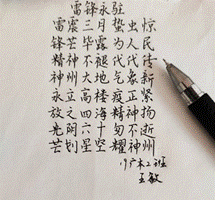 雷锋永驻
雷震三月蛰虫惊
锋芒毕露为人民
精神不褪代代传
神州大地气象新
永立高楼疫正紧
放之四海精神扬
光阴六十匆不逝
芒划星空耀神州
广本二班
王敏